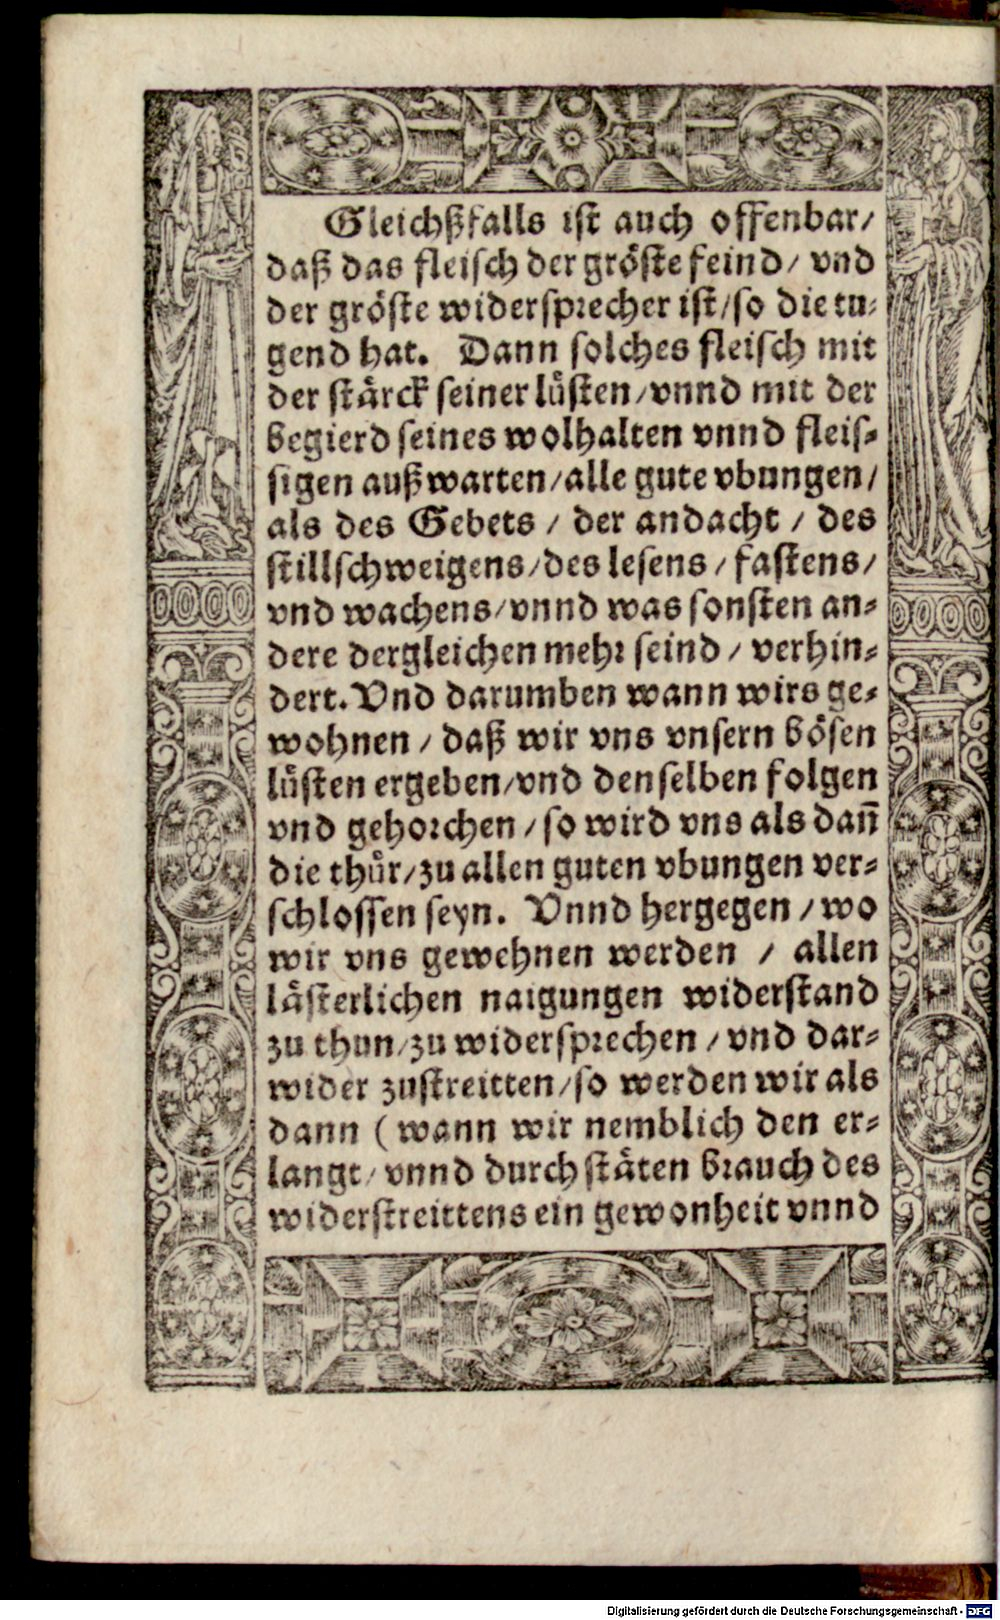 Gleichßfalls ist auch offenbar/
daß das fleisch der gröste feind/ vnd
der gröste widersprecher ist/so die tu-
gend hat. Dann solches fleisch mit
der stärck seiner lüsten/vnnd mit der
begierd seines wolhalten vnnd fleis-
sigen außwarten/alle gute vbungen/
als des Gebets / der andacht / des
stillschweigens/des lesens/ fastens/
vnd wachens/vnnd was sonsten an-
dere dergleichen mehr seind/ verhin-
dert. Vnd darumben wann wirs ge-
wohnen / daß wir vns vnsern bösen
lüsten ergeben/vnd denselben folgen
vnd gehorchen/so wird vns als dañ
die thür/zu allen guten vbungen ver-
schlossen seyn. Vnnd hergegen/wo
wir vns gewehnen werden / allen
lästerlichen naigungen widerstand
zu thun/zu widersprechen/vnd dar-
wider zustreitten/so werden wir als
dann (wann wir nemblich den er-
langt/vnnd durch stäten brauch des
widerstreittens ein gewonheit vnnd
Digitalisierung gefördert durch die Deutsche Forschungsgemeinschaft - DFG